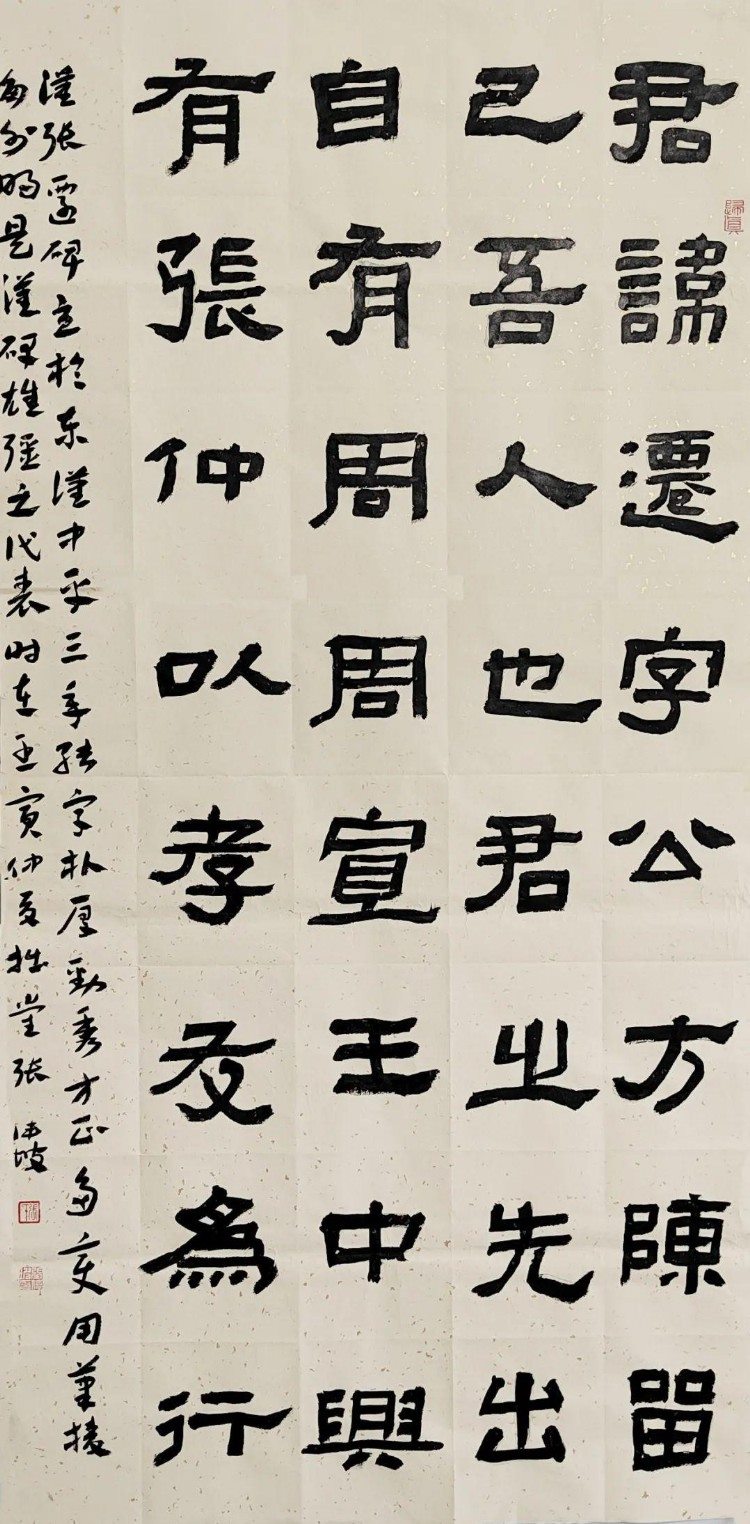 君諱遷字公方陳留
己吾人也君之先出
自有周周宣王中興
有張仲以孝友為行
漢张遷碑立於东漢中平三年隸字朴厚勁秀方正多变用筆棱
角分明是漢碑雄强之代表时在壬寅仲夏拙堂张
歸真